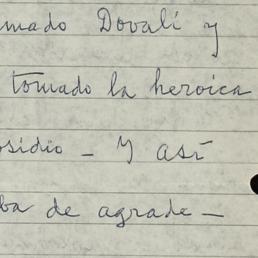 mado Dovalí y
tomado la heroica
osidio - Y así
ba de agrade-